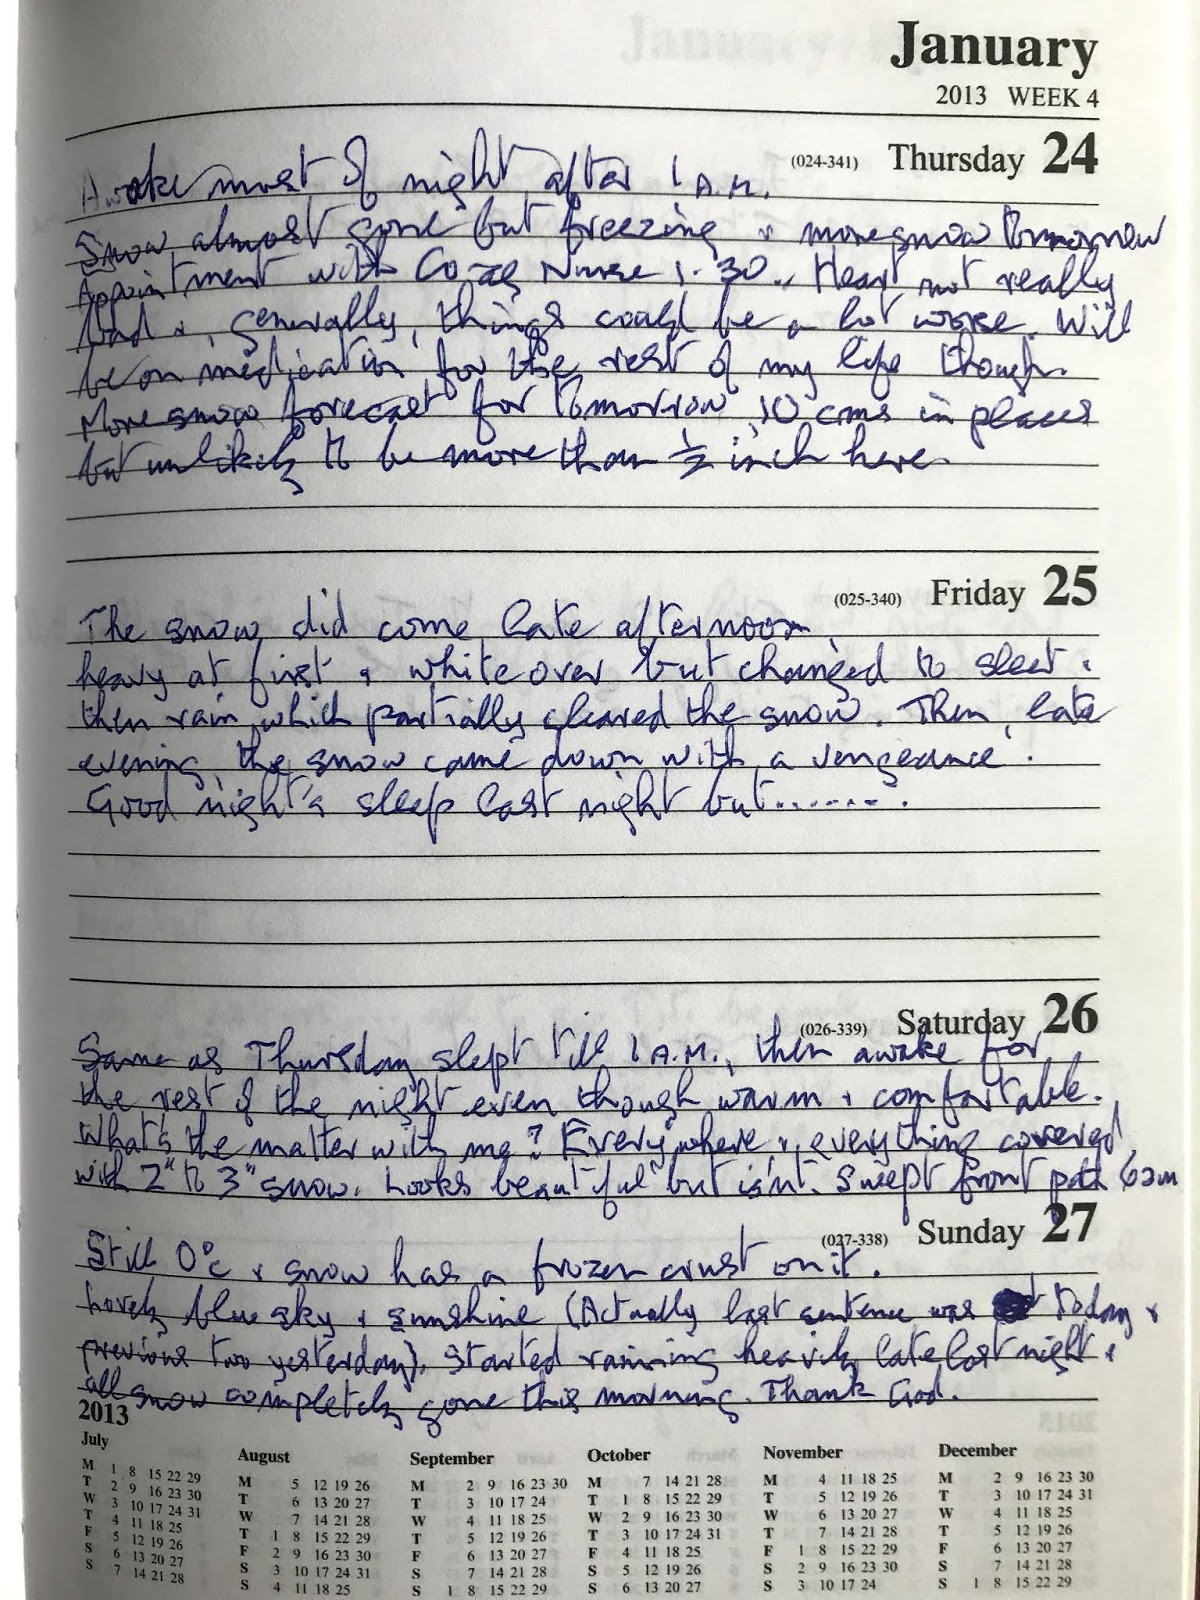 January
2013 WEEK 4
(024-341) Thursday 24
Awake most of night after 1 A.M.
Snow almost gone but freezing & more snow tomorrow
Appointment with Coag Nurse 1.30. Heart not really
bad & generally, things could be a lot worse. Will
be on medication for the rest of my life though.
More snow forecast for tomorrow 10 cms in places
but unlikely to be more than ½ inch here.
(025-340) Friday 25
The snow did come late afternoon,
heavy at first & white over but changed to sleet &
then rain which partially cleared the snow. Then, late
evening, the snow came down with a vengeance.
Good night's sleep last night but........
(026-339) Saturday 26
Same as Thursday slept till 1 A.M., then awake for
the rest of the night even though warm & comfortable.
What's the matter with me? Everywhere & everything covered
with 2" to 3" snow. Looks beautiful but isn't. Swept front path 6am
(027-338) Sunday 27
Still 0°c & snow has a frozen crust on it.
Lovely blue sky & sunshine (Actually last sentence was today &
previous two yesterday). Started raining heavily late last night &
all snow completely gone this morning. Thank God.
2013
July August September October November December
M 1 8 15 22 29 M 5 12 19 26 M 2 9 16 23 30 M 7 14 21 28 M 4 11 18 25 M 2 9 16 23 30
T 2 9 16 23 30 T 6 13 20 27 T 3 10 17 24 T 1 8 15 22 29 T 5 12 19 26 T 3 10 17 24 31
W 3 10 17 24 31 W 7 14 21 28 W 4 11 18 25 W 2 9 16 23 30 W 6 13 20 27 W 4 11 18 25
T 4 11 18 25 T 1 8 15 22 29 T 5 12 19 26 T 3 10 17 24 31 T 7 14 21 28 T 5 12 19 26
F 5 12 19 26 F 2 9 16 23 30 F 6 13 20 27 F 4 11 18 25 F 1 8 15 22 29 F 6 13 20 27
S 6 13 20 27 S 3 10 17 24 31 S 7 14 21 28 S 5 12 19 26 S 2 9 16 23 30 S 7 14 21 28
S 7 14 21 28 S 4 11 18 25 S 1 8 15 22 29 S 6 13 20 27 S 3 10 17 24 S 1 8 15 22 29